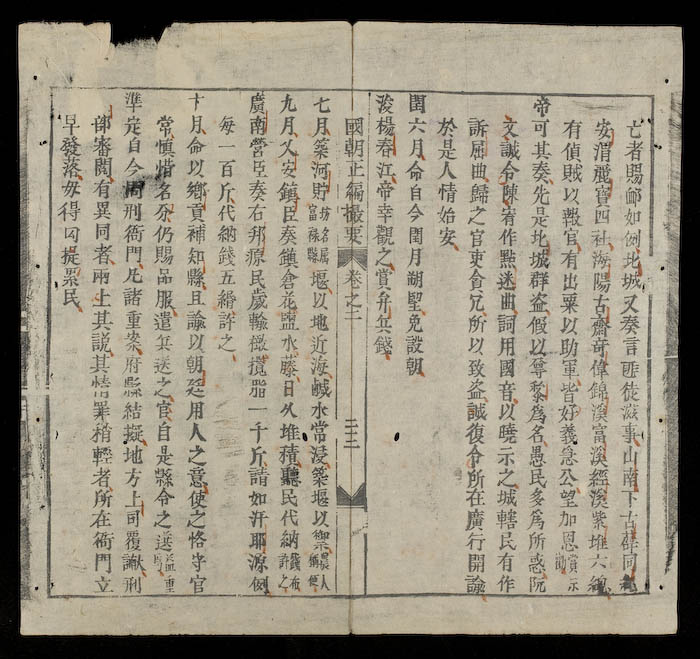 亡者賜邺如例北城又奏言匪徒滋事山南下古薛同總
安渭麗寶四社海陽古齋奇偉錦溪富溪經溪紫堆六總
有偵賊以報官有出粟以助軍皆好義急公望加恩賞示勸
帝可其奏先是北城群盗假以尊黎爲名愚民多爲所惑阮
文誠令陳宥作點迷曲詞用國音以曉示之城轄民有作
訴屈曲歸之官吏貪冗所以致盗誠復令所在廣行開諭
於是人情始安
閏六月命自今閏月朔望免設朝
浚楊春江帝幸觀之賞弁兵錢
國朝正編撮要 卷之二 二十二
七月築河貯坊名屬富禄縣堰以地近海鹹水常浸築堰以禦農人稱便
九月乂安鎮臣奏鎮倉花盐水藤日久堆積聽民代納錢布許之
廣南營臣奏右邦源民歲輸橄欖脂一千斤請如汧耶源例
每一百斤代納錢五緡許之
十月命以鄉貢補知縣且諭以朝廷用人之意使之恪守官
常慎惜名分仍賜品服遣兵送之官自是縣令之選益重
準定自今問刑衙門凡諸重案府縣結擬地方上司覆讞刑
部審閱有異同者兩上其說其情罪稍輕者所在衙門立
早發落毋得囚提累民